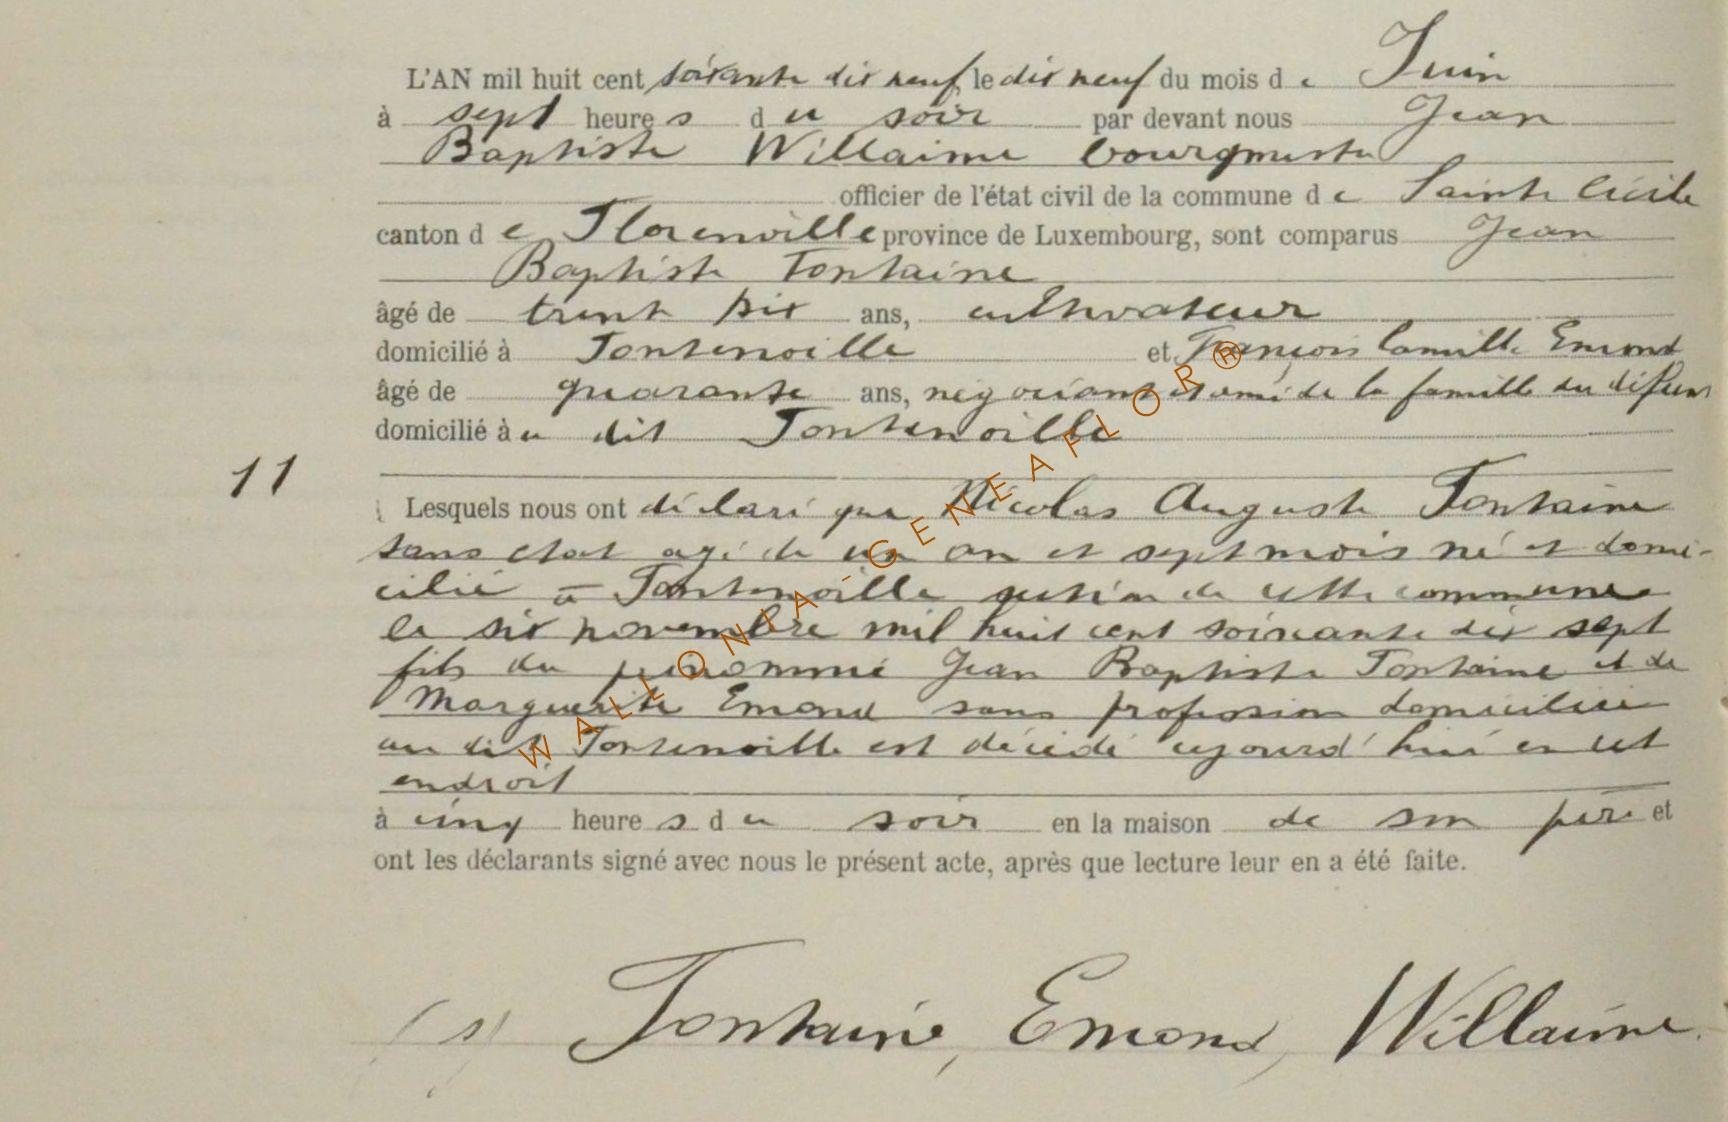 L'AN mil huit cent soixante dix neuf, le dix neuf du mois de Juin
à sept heures du soir par devant nous Jean
Baptiste Willaime bourgmestre
officier de l'état civil de la commune de Sainte Cécile
canton de Florenville province de Luxembourg, sont comparus Jean
Baptiste Fontaine
âgé de trente six ans, cultivateur
domicilié à Fontenoille et François Camille Emond
âgé de quarante ans, négociant et ami de la famille du défunt
domicilié à u dit Fontenoille
11
Lesquels nous ont déclaré que Nicolas Auguste Fontaine
sans état agé de un an et sept mois né et domi-
cilié à Fontenoille section de cette commune
le six novembre mil huit cent soixante dix sept
fils du prénommé Jean Baptiste Fontaine et de
Marguerite Emond sans profession domiciliée
au dit Fontenoille est décédé aujourd'hui en cet
endroit
à cinq heures du soir en la maison de son père et
ont les déclarants signé avec nous le présent acte, après que lecture leur en a été faite.
(s) Fontaine, Emond, Willaime.
WALLONIA-GENEAFLOR®